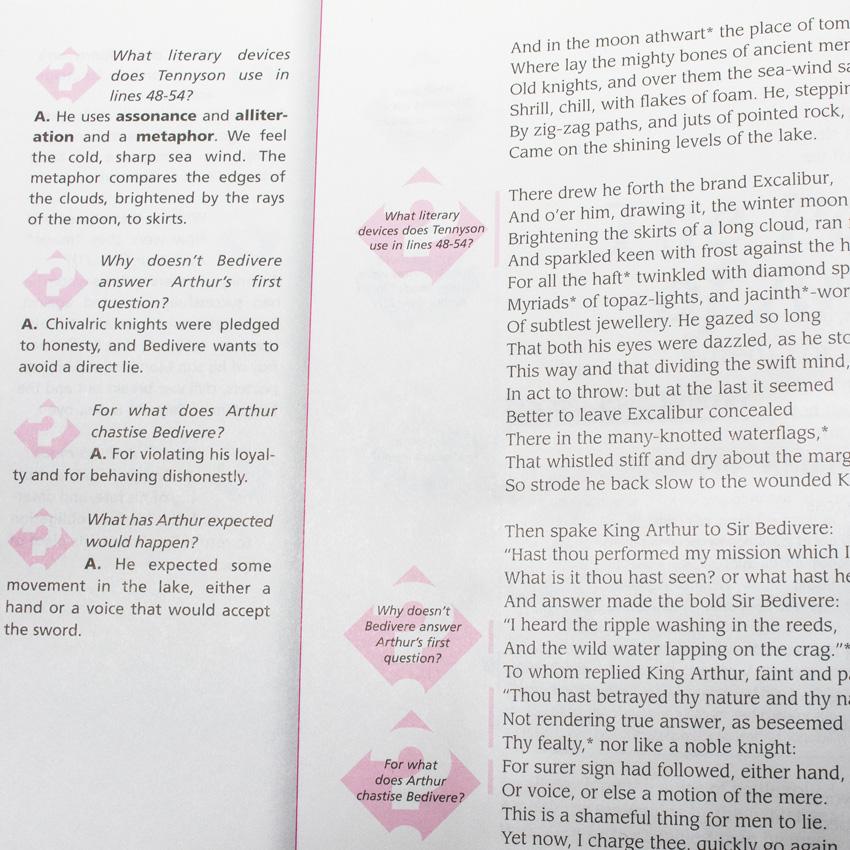 What literary devices
does Tennyson use in
lines 48-54?
A. He uses assonance and alliter-
ation and a metaphor. We feel
the cold, sharp sea wind. The
metaphor compares the edges of
the clouds, brightened by the rays
of the moon, to skirts.
Why doesn't Bedivere
answer Arthur's first
question?
A. Chivalric knights were pledged
to honesty, and Bedivere wants to
avoid a direct lie.
For what does Arthur
chastise Bedivere?
A. For violating his loyal-
ty and for behaving dishonestly.
What has Arthur expected
would happen?
A. He expected some
movement in the lake, either a
hand or a voice that would accept
the sword.
What literary
devices does Tennyson
use in lines 48-54?
Why doesn't
Bedivere answer
Arthur's first
question?
For what
does Arthur
chastise Bedivere?
And in the moon athwart* the place of
Where lay the mighty bones of ancient
Old knights, and over them the sea-wind
Shrill, chill, with flakes of foam. He,
By zig-zag paths, and juts of pointed rock,
Came on the shining levels of the lake.
There drew he forth the brand Excalibur,
And o'er him, drawing it, the winter moon
Brightening the skirts of a long cloud, ran
And sparkled keen with frost against the
For all the haft* twinkled with diamond
Myriads* of topaz-lights, and jacinth*-
Of subtlest jewellery. He gazed so long
That both his eyes were dazzled, as he
This way and that dividing the swift mind,
In act to throw: but at the last it seemed
Better to leave Excalibur concealed
There in the many-knotted waterflags,*
That whistled stiff and dry about the
So strode he back slow to the wounded
Then spake King Arthur to Sir Bedivere:
"Hast thou performed my mission which I
What is it thou hast seen? or what hast
And answer made the bold Sir Bedivere:
"I heard the ripple washing in the reeds,
And the wild water lapping on the crag."*
To whom replied King Arthur, faint and
"Thou hast betrayed thy nature and thy
Not rendering true answer, as beseemed
Thy fealty,* nor like a noble knight:
For surer sign had followed, either hand,
Or voice, or else a motion of the mere.
This is a shameful thing for men to lie.
Yet now, I charge thee, quickly go again